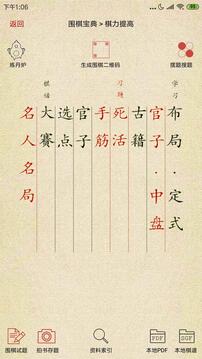 下午1:06
返回
围棋宝典 > 棋力提高
炼丹炉
生成围棋二维码
摆题搜题
学习
布局·定式
官子·中盘
古籍
习题
死活
手筋
官子
选点
棋谱
大赛
名人名局
围棋试题
拍书存题
资料索引
PDF
本地PDF
SGF
本地棋谱